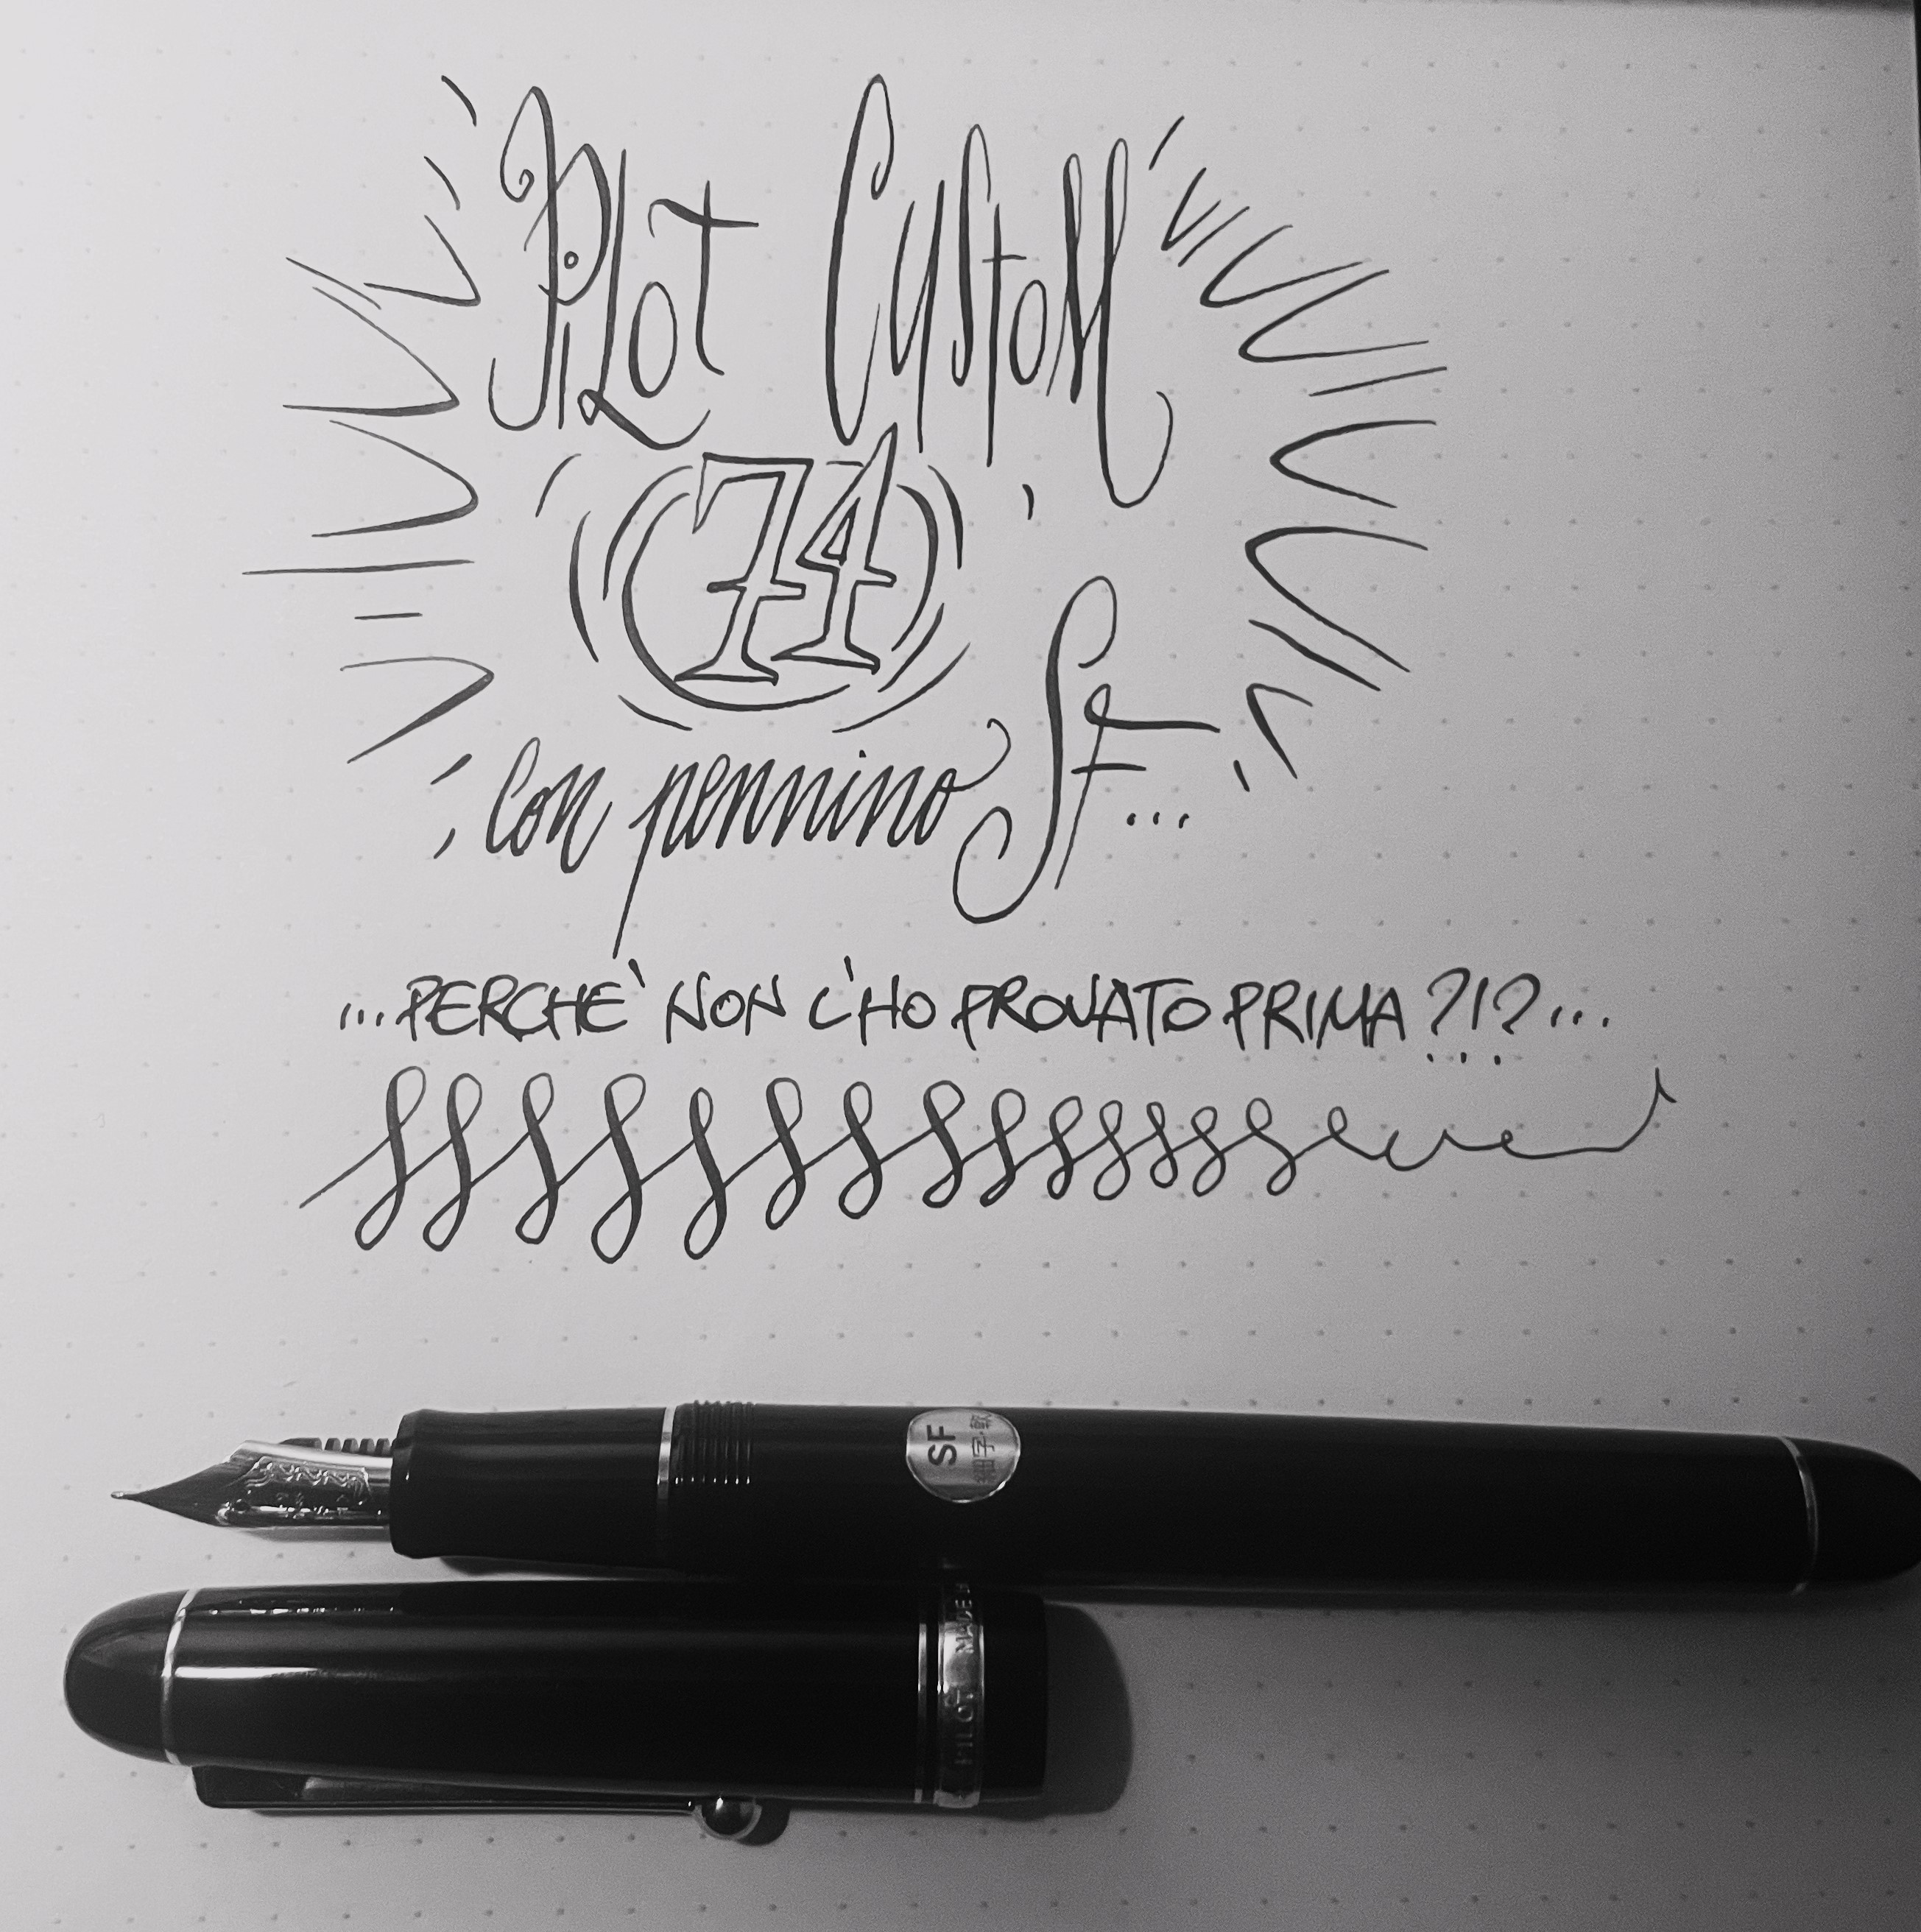 Pilot Custom
74
con pennino SF...
...PERCHE' NON L'HO PROVATO PRIMA?!?...
SF
細字・軟
PILOT MADE